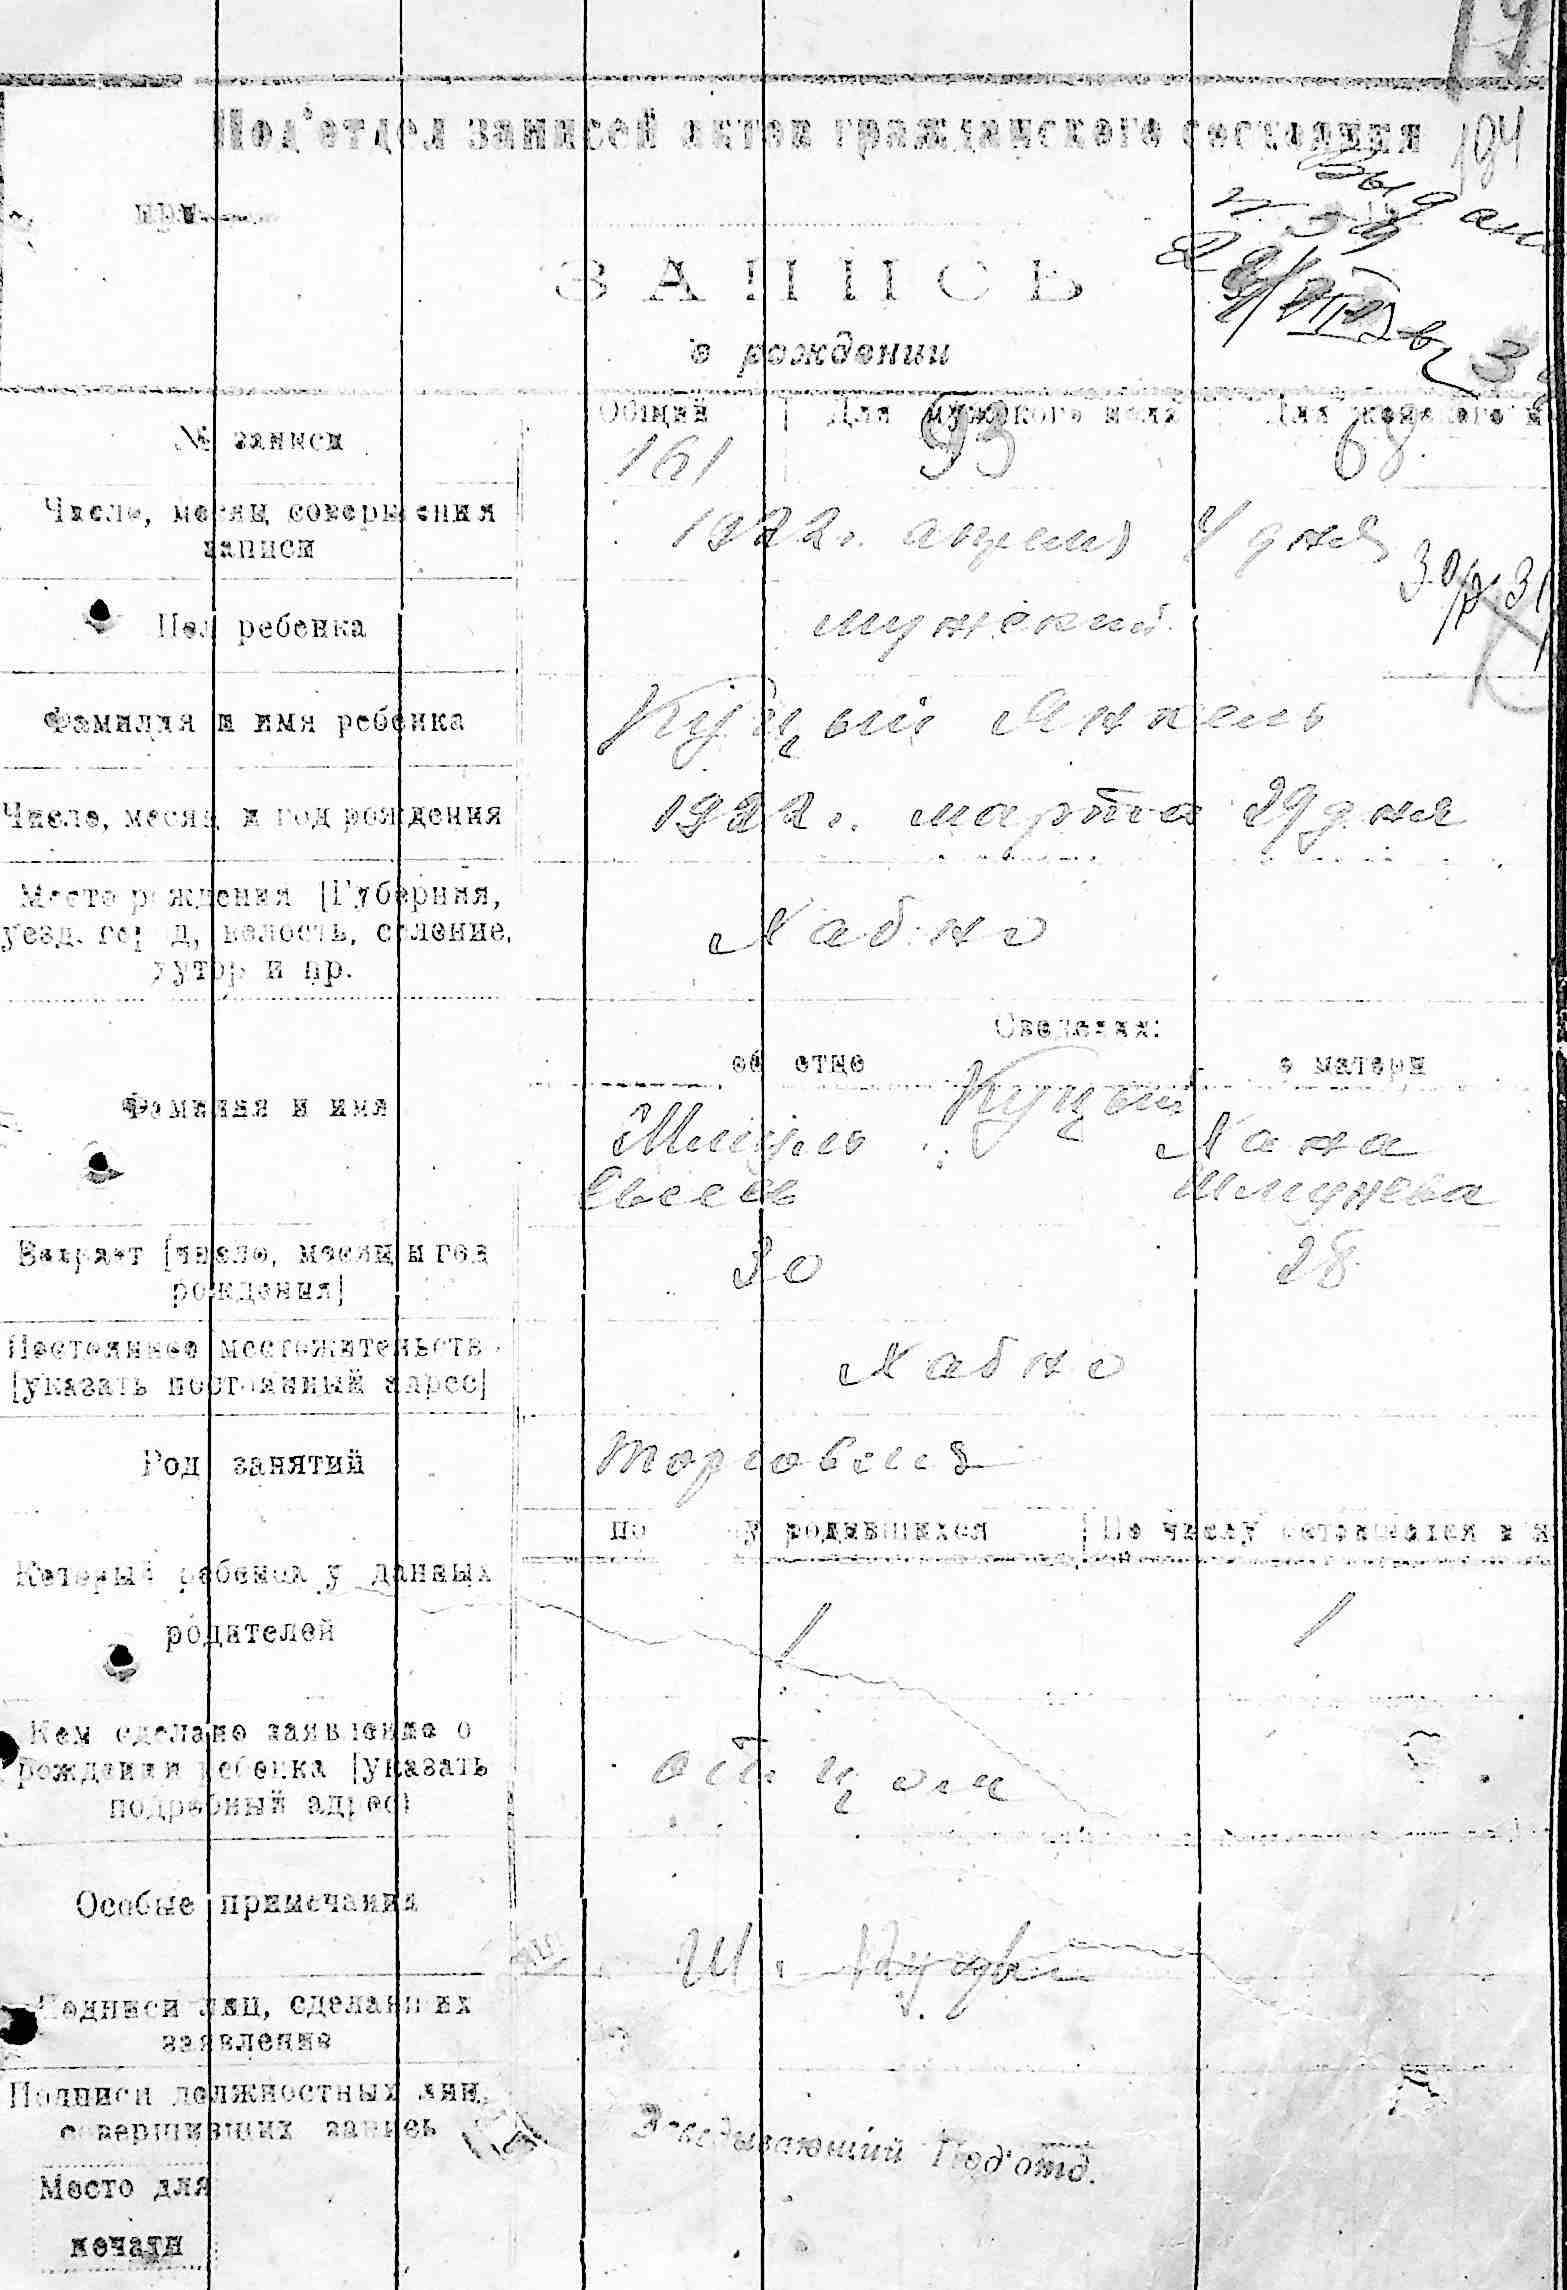 194
Под'отдел записей актов гражданского состояния
Выдан
ЗАПИСЬ
о рождении
№ записи
Общий | Для мужского пола | Для женского
161 93 68
Число, месяц совершения записи
1922 г. апреля 4 дня
Пол ребенка
мужский
Фамилия и имя ребенка
Куцый Янкель
Число, месяц и год рождения
1922 г. марта 29 дня
Место рождения [Губерния,
уезд, город, волость, селение,
хутор и пр.
Хабно
Сведения:
об отце о матери
Фамилия и имя
Куцый
Хана
Шмулева
Возраст [число, месяц и год
рождения]
30 28
Постоянное местожительств
[указать постоянный адрес]
Хабно
Род занятий
торговля
По у родившихся | По числу оставшихся в
Который ребенок у данных
родителей
1 1
Кем сделано заявление о
рождении ребенка [указать
подробный адрес]
отцом
Особые примечания
Ш. Куцый
Подписи лиц, сделавших
заявление
Подписи должностных лиц,
совершивших запись
Заведывающий Под'отд.
Место для
печати